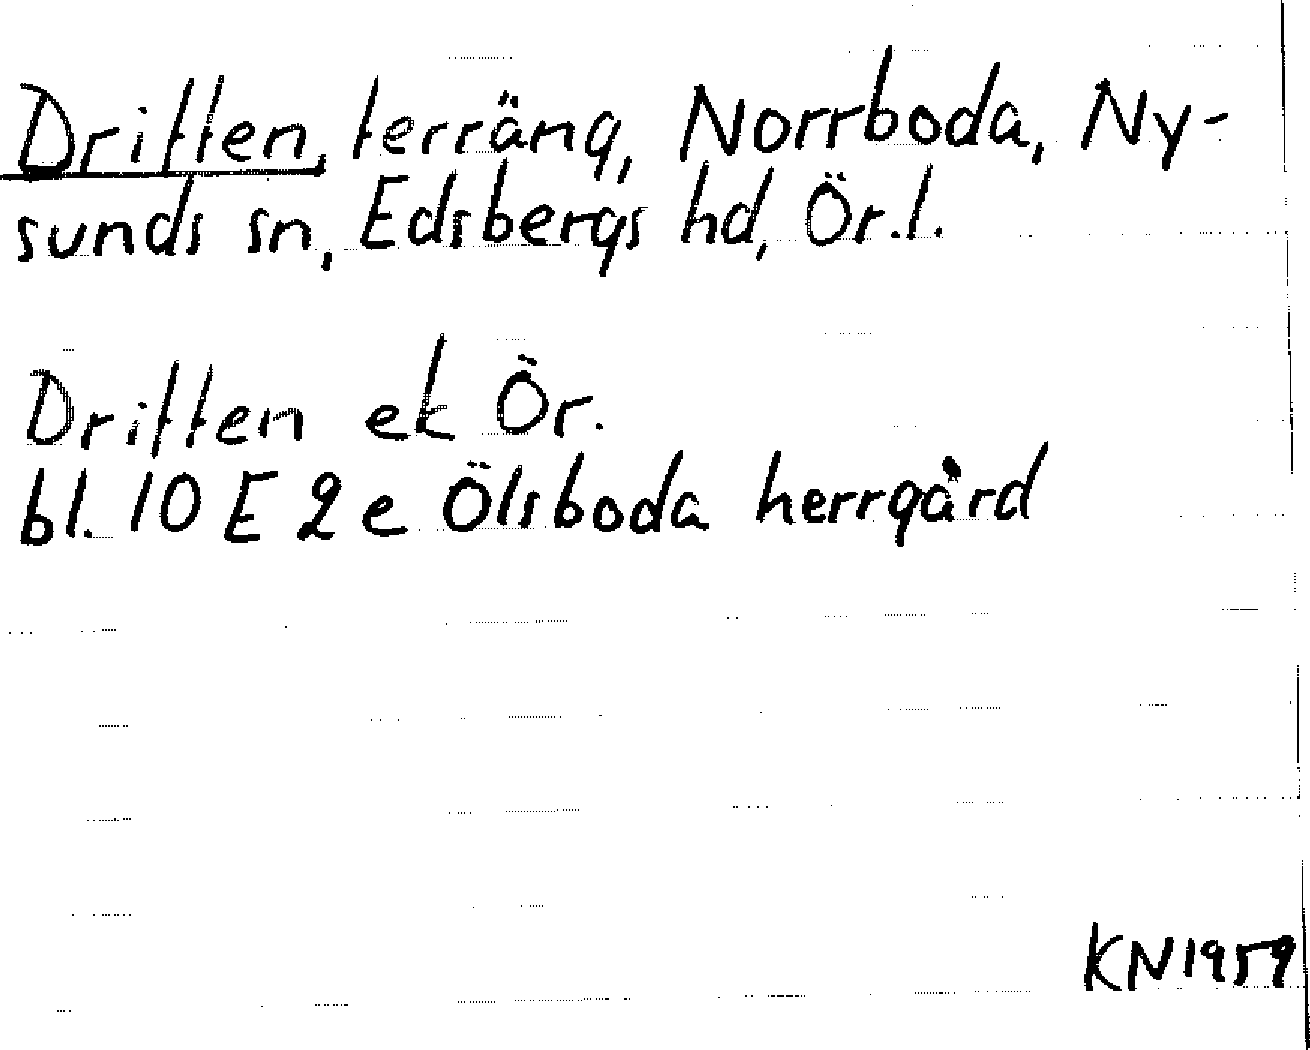 Driften, terräng, Norrboda, Ny-
sunds sn, Edsbergs hd, Ör.l.
Driften ek Ör.
bl. 10 E 2 e Ölsboda herrgård
KN 1959